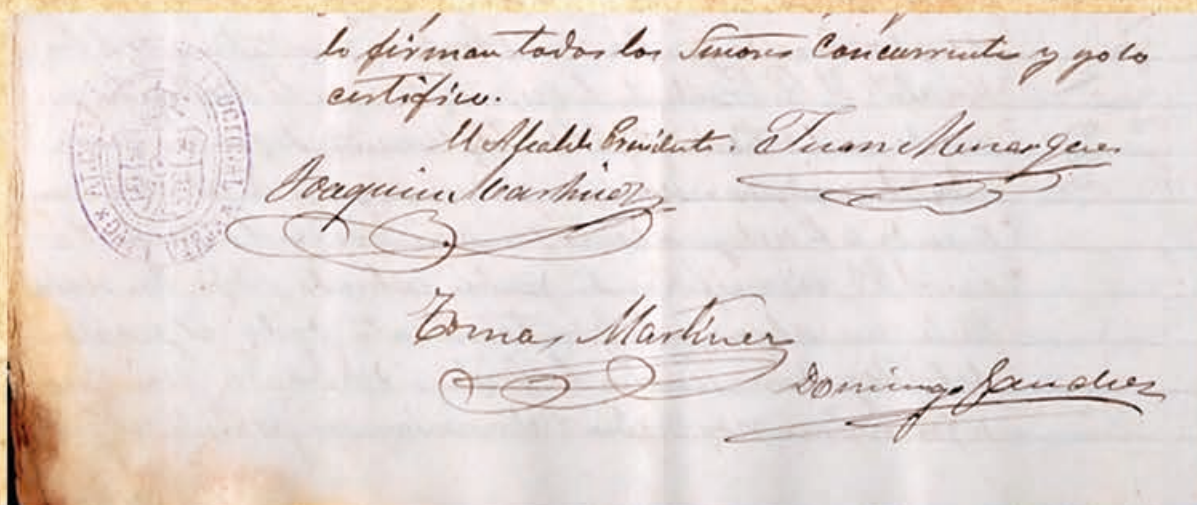 lo firman todos los Señores Concurrentes y yo lo
certifico.
El Alcalde Presidente
Juan Menarguez
Joaquin Martinez
Tomas Martinez
Domingo Sanchez